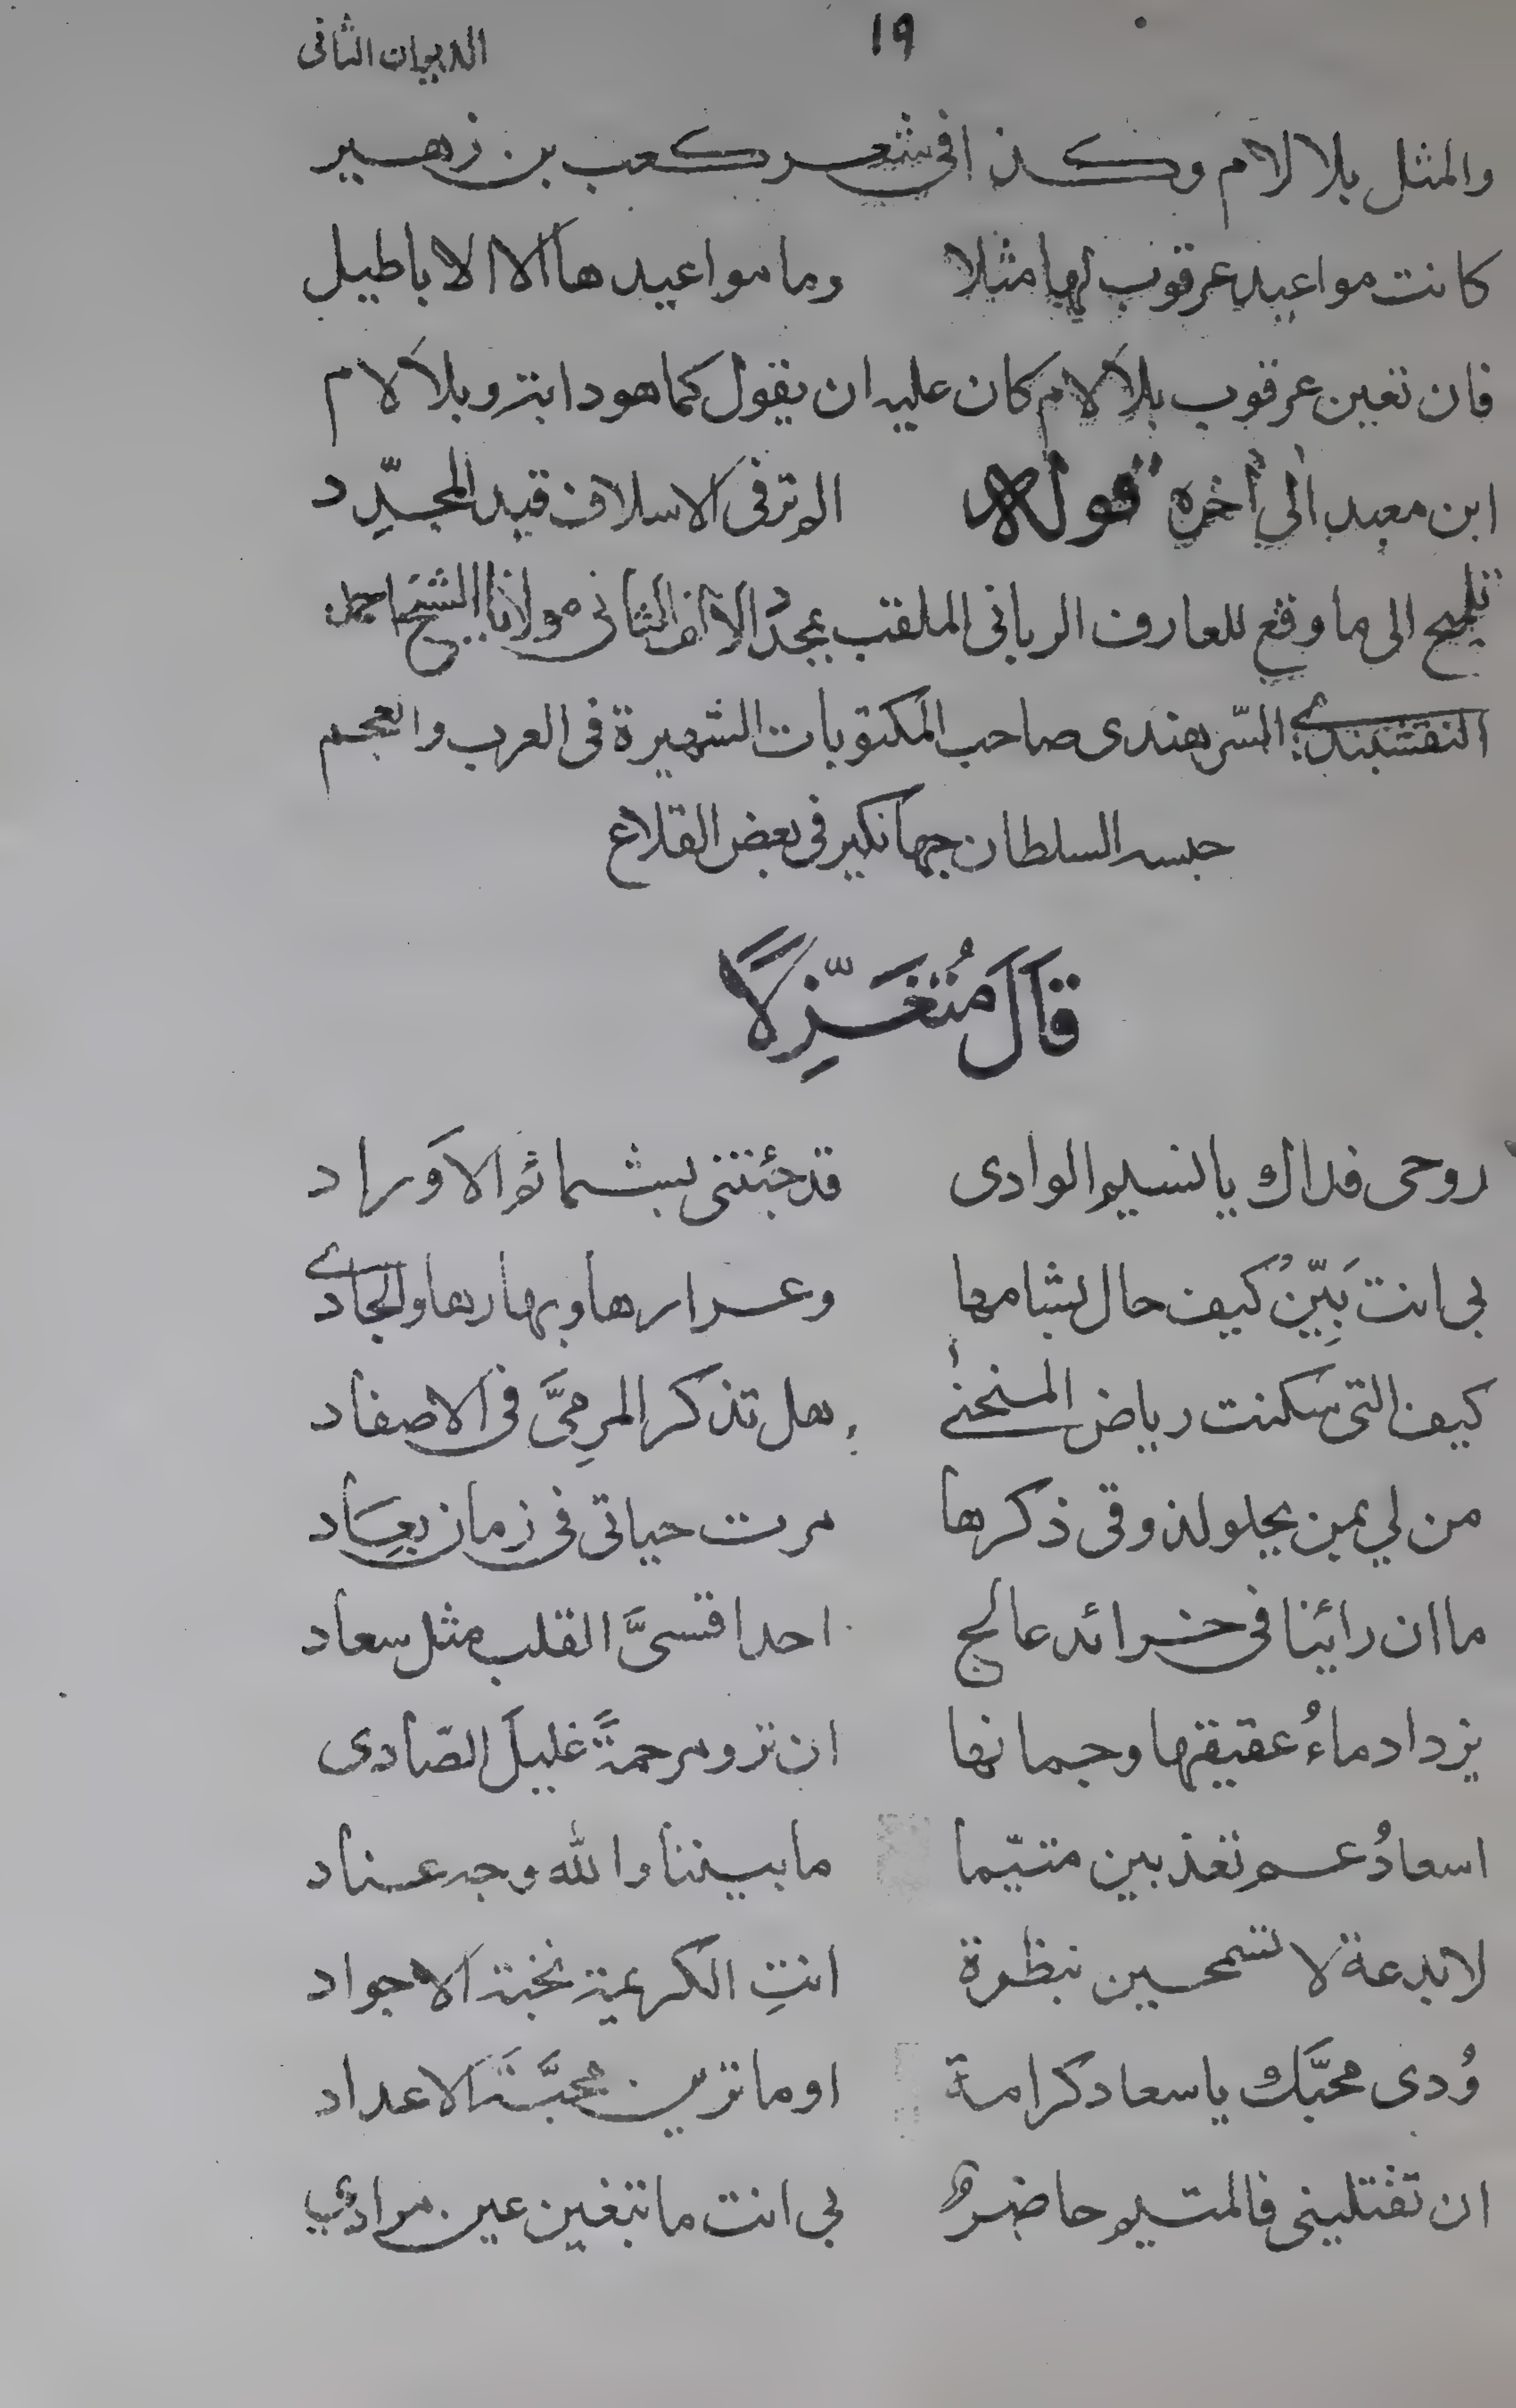 ١٩ الديوان الثانى
والمثل بلا لام وكذا فى شعر كعب بن زهير
كانت مواعيد عرقوب لها مثلا وما مواعيدها الا الاباطيل
فان تعين عرقوب بلا لام كان عليه ان يقول كما هو دابتر وبلا لام
ابن معبد الى أخره قوله الم تر فى الاسلاف قيد المجدِّد
تلميح الى ما وقع للعارف الربانى الملقب بمجدد الالف الثانى مولانا الشيخ احمد
النقشبندى السّرهندى صاحب المكتوبات الشهيرة فى العرب والعجم
حبسه السلطان جهانكير فى بعض القلاع
قَالَ مُتَغَزِّلًا
روحى فداك يا نسيم الوادى قد جئتنى بشمائم الاَوراد
بى انت بَيِّنْ كيف حال بشامها وعرارها وبهارها والجادى
كيف التى سكنت رياض المنحنىٰ هل تذكر المرمِىَّ فى الاصفاد
من لي بمن يحلو لذوقى ذكرها مرت حياتى فى زمان بِعَاد
ما ان رائينا فى خرائد عالج احدا قسىَّ القلب مثل سعاد
يزداد ماءُ عقيقها وجمانها ان ترو مرحمةً غليلَ الصّادى
اسعادُ عم تعذبين متيّما ما بيننا والله وجه عناد
لا بدعة لا تسمحين بنظرة انتِ الكريمة نخبة الاجواد
وُدى محبَّك يا سعاد كرامة او ما ترين محبَّةَ الاعداد
ان تقتلينى فالمتيم حاضرٌ بى انت ما تبغين عين مرادى